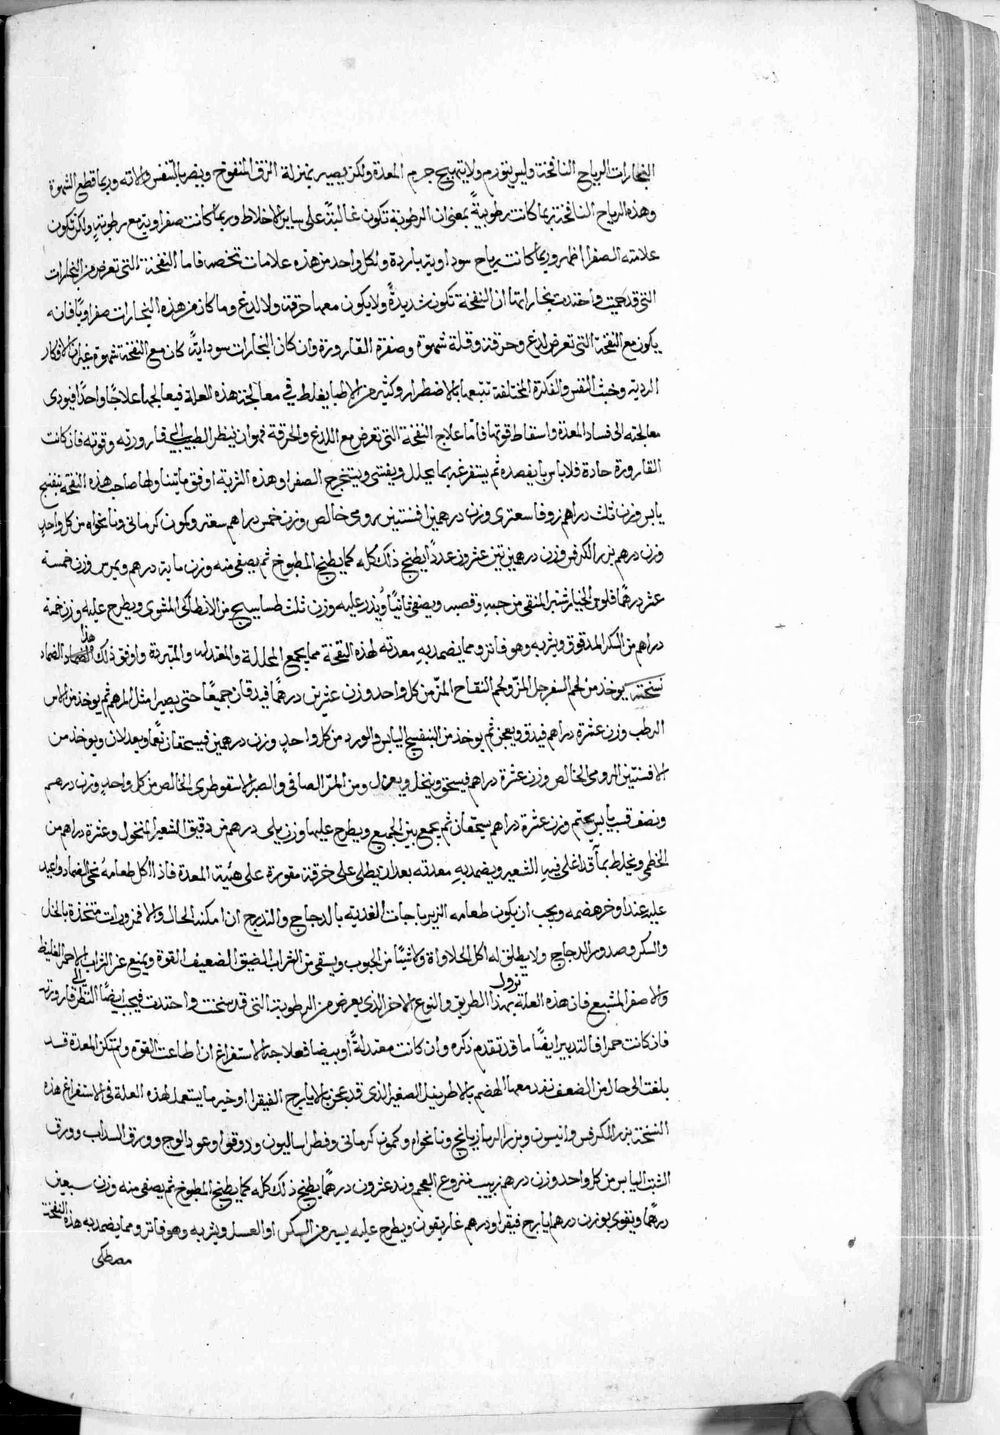 البخارات الرياح النافخة وليس يتورم ولا يتهيج جرم المعدة ولكن يصير بمنزلة الزق المنفوخ ويضر بالتنفس والاته وربما قطع الشهوة
وهذه الرياح النافخة ربما كانت رطوبية بمعنى ان الرطوبة تكون غالبة على ساير الاخلاط وربما كانت صفراوية مع رطوبة ولكن تكون
علامته الصفرا اظهر وربما كانت رياح سوداوية باردة ولكل واحد من هذه علامات تخصه فاما النفخة التي تعرض من البخارات
التي قد حميت واحتدت بخاراتها ان النفخة تكون شديدة ولا يكون معها حرقة ولا لدغ وما كان من هذه البخارات صفراويا فانه
يكون مع النفخة التي تعرض لدغ وحرقة وقلة شهوة وصفرة القارورة وان كان البخارات سوداية كان مع النفخة شهوة غير ان الافكار
الردية وخبث النفس والفكرة المختلفة تتبعها بالاضطرار وكثير من الاطبا يغلط في معالجة هذه العلة فيعالجها علاجا واحدا فيودى
معالجته الى فساد المعدة واسقاط قوتها فاما علاج النفخة التي تعرض مع اللدغ والحرقة فهو ان ينظر الطبيب الى قارورته وقوته فان كانت
القارورة حادة فلا باس بان يفصده ثم يستفرغه بما يحلل ويفشى ويستخرج الصفرا وهذه الشربة اوفق ما يتناولها صاحب هذه النفخة بنفسج
يابس وزن ثلث دراهم زوفا سعترى وزن درهمين افسنتين رومى خالص وزن خمس دراهم سعتر وكمون كرمانى ونانخواه من كل واحد
وزن درهم بزر الكرفس وزن درهمين تين عشرون عددا يطبخ ذلك كله كما يطبخ المطبوخ ثم يصفى منه وزن ماية درهم ويمرس وزن خمسة
عشر درهما فلوس الخيارشنبر المنقى من حبه وقصبه ويصفى ثانيا ويذر عليه وزن ثلث طساسيج من الانطاكى المشوى ويطرح عليه وزن خمسة
دراهم من السكر المدقوق ويشربه وهو فاتر ومما يضمد به معدته لهذه النفخة مما يجمع المحللة والمعدلة والمبردة واوفق ذلك هذا الضماد
نسخته يوخذ من لحم السفرجل المز ولحم التفاح المز من كل واحد وزن عشرين درهما فيدقان جميعا حتى يصيرا مثل المرهم ثم يوخذ من الاس
الرطب وزن عشرة دراهم فيدق ويعجن ثم يوخذ من البنفسج اليابس والورد من كل واحد وزن درهمين فيسحقان نعما ويعدلان ويوخذ من
الافسنتين الرومى الخالص وزن عشرة دراهم فيسحق وينخل ويعزل ومن المر الصافى والصبر الاسقوطرى الخالص من كل واحد وزن درهم
ونصف قسب يابس يحتم وزن عشرة دراهم يسحقان ثم يجمع بين الجميع ويطرح عليها وزن درهم من دقيق الشعير المنخول وعشرة دراهم من
الخطمى ويخلط بماء قد اغلى فيه الشعير ويضمد به معدته بعد ان يطلى على خرقة مقورة على هيئة المعدة فاذا اكل طعامه نحى الضماد واعيد
عليه عند اوخر هضمه ويجب ان يكون طعامه الزيرباجات المغذية بالدجاج والتدرج ان امكنه الحال والا فمزورات متخذة بالخل
والسكر وصدور الدجاج ولا يطلق له اكل الحلاواة ولا شيئا من الحبوب ويسقى من الشراب المضيق الضعيف القوة ويمنع عن الشراب الاحمر الغليظ
والاصفر المشبع فان هذه العلة تزول بهذا الطريق والنوع الاخر الذى يعرض من الرطوبة التى قد سخنت واحتدت فيجب ايضا النظر الى قارورته
فان كانت حمرا فالتدبير ايضا ما قد تقدم ذكره وان كانت معتدلة او بيضا فعلاجه الاستفراغ ان اطاعت القوة ولم تكن المعدة قد
بلغت الى حال من الضعف نفد معها الهضم بالاطريفل الصغير الذى قد عجن بالايارج الفيقرا اوخير ما يستعمل لهذه العلة فى الاستفراغ هذه
النسخة بزر الكرفس وانيسون وبزر الرازيانج ونانخواه وكمون كرمانى وفطراساليون ودوقوا وعود الوج وورق السداب وورق
الشبت اليابس من كل واحد وزن درهم زبيب منزوع العجم وزن عشرون درهما يطبخ ذلك كله كما يطبخ المطبوخ ثم يصفى منه وزن سبعين
درهما ويقوى بوزن درهم ايارج فيقرا ودرهم غاريقون ويطرح عليه يسير من السكر او العسل ويشربه وهو فاتر ومما يضمد به هذه النفخة
مصطكى